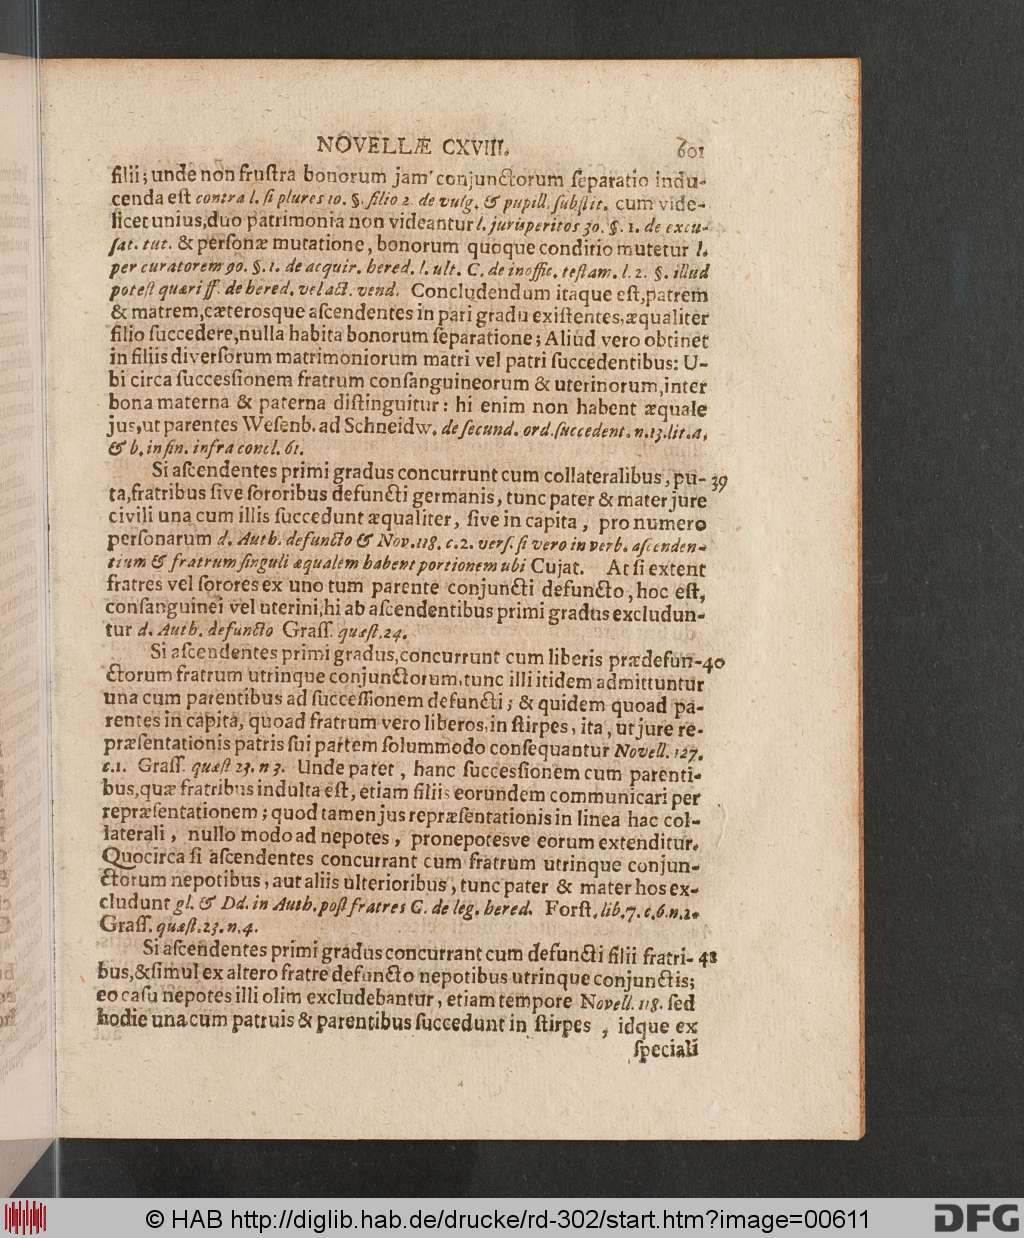 NOVELLÆ CXVIII. 601
filii; unde non frustra bonorum jam conjunctorum separatio indu-
cenda est contra l. si plures 10. §. filio 2. de vulg. & pupill. substit. cum vide-
licet unius, duo patrimonia non videantur l. jurisperitos 30. §. 1. de excu-
sat. tut. & personæ mutatione, bonorum quoque conditio mutetur l.
per curatorem 90. §. 1. de acquir. hered. l. ult. C. de inoffic. testam. l. 2. §. illud
potest quæri ff. de hered. vel act. vend. Concludendum itaque est, patrem
& matrem, cæterosque ascendentes in pari gradu existentes, æqualiter
filio succedere, nulla habita bonorum separatione; Aliud vero obtinet
in filiis diversorum matrimoniorum matri vel patri succedentibus: U-
bi circa successionem fratrum consanguineorum & uterinorum, inter
bona materna & paterna distinguitur: hi enim non habent æquale
jus, ut parentes Wesenb. ad Schneidw. de secund. ord. succedent. n. 13. lit. a,
& b. in fin. infra concl. 61.
Si ascendentes primi gradus concurrunt cum collateralibus, pu- 39
ta, fratribus sive sororibus defuncti germanis, tunc pater & mater jure
civili una cum illis succedunt æqualiter, sive in capita, pro numero
personarum d. Auth. defuncto & Nov. 118. c. 2. vers. si vero in verb. ascenden-
tium & fratrum singuli æqualem habent portionem ubi Cujat. At si extent
fratres vel sorores ex uno tum parente conjuncti defuncto, hoc est,
consanguinei vel uterini, hi ab ascendentibus primi gradus excludun-
tur d. Auth. defuncto Grass. quæst. 24.
Si ascendentes primi gradus, concurrunt cum liberis prædefun- 40
ctorum fratrum utrinque conjunctorum, tunc illi itidem admittuntur
una cum parentibus ad successionem defuncti; & quidem quoad pa-
rentes in capita, quoad fratrum vero liberos, in stirpes, ita, ut jure re-
præsentationis patris sui partem solummodo consequantur Novell. 127.
c. 1. Grass. quæst 23. n 3. Unde patet, hanc successionem cum parenti-
bus, quæ fratribus indulta est, etiam filiis eorundem communicari per
repræsentationem; quod tamen jus repræsentationis in linea hac col-
laterali, nullo modo ad nepotes, pronepotesve eorum extenditur.
Quocirca si ascendentes concurrant cum fratrum utrinque conjun-
ctorum nepotibus, aut aliis ulterioribus, tunc pater & mater hos ex-
cludunt gl. & Dd. in Auth. post fratres C. de leg. hered. Forst. lib. 7. c. 6. n. 2.
Grass. quæst. 23. n. 4.
Si ascendentes primi gradus concurrant cum defuncti filii fratri- 41
bus, & simul ex altero fratre defuncto nepotibus utrinque conjunctis;
eo casu nepotes illi olim excludebantur, etiam tempore Novell. 118. sed
hodie una cum patruis & parentibus succedunt in stirpes, idque ex
speciali
© HAB http://diglib.hab.de/drucke/rd-302/start.htm?image=00611
DFG